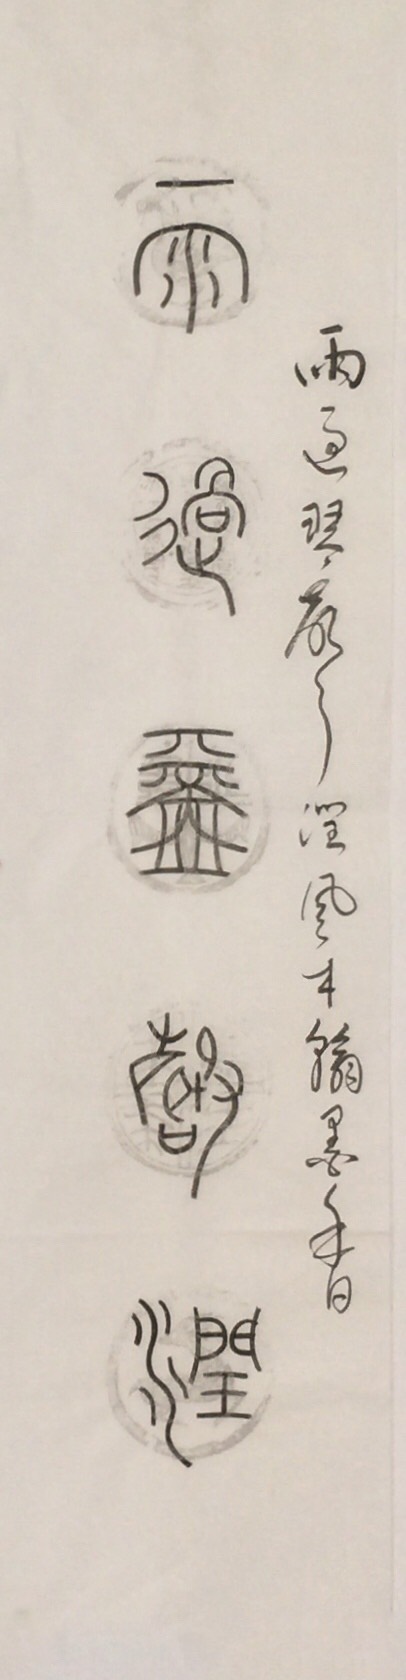 雨過琴書潤風來翰墨香
雨過琴書潤